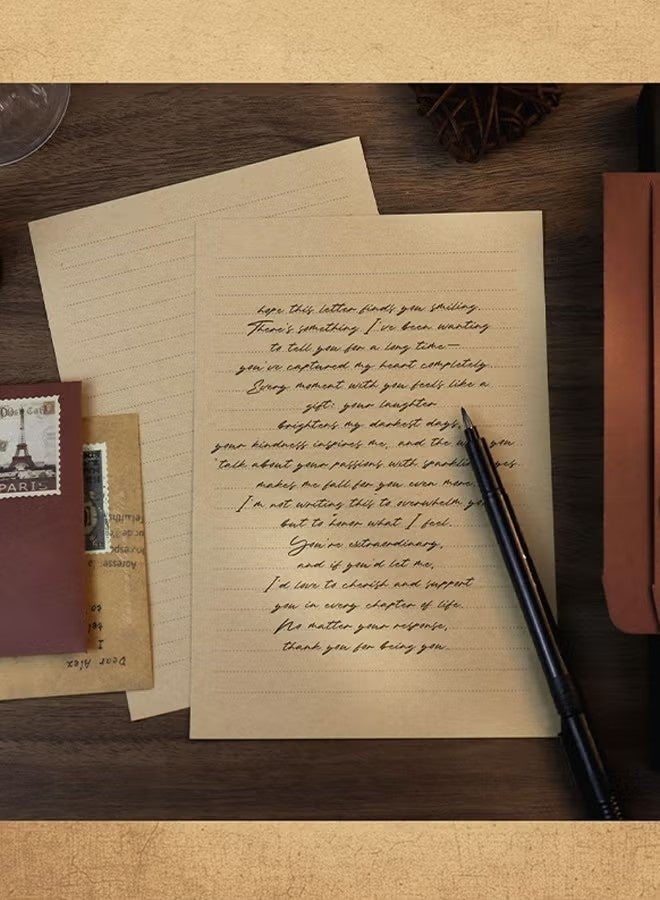 hope this letter finds you smiling.
There's something I've been wanting
to tell you for a long time—
you've captured my heart completely.
Every moment with you feels like a
gift: your laughter
brightens my darkest days,
your kindness inspires me, and the you
talk about your passions with
makes me fall for you even more.
I'm not writing this to overwhelm
but to honor what I feel.
You're extraordinary,
and if you'd let me,
I'd love to cherish and support
you in every chapter of life.
No matter your response,
thank you for being you.
Post Card
PARIS
Dear Alex
I
to
Adresse